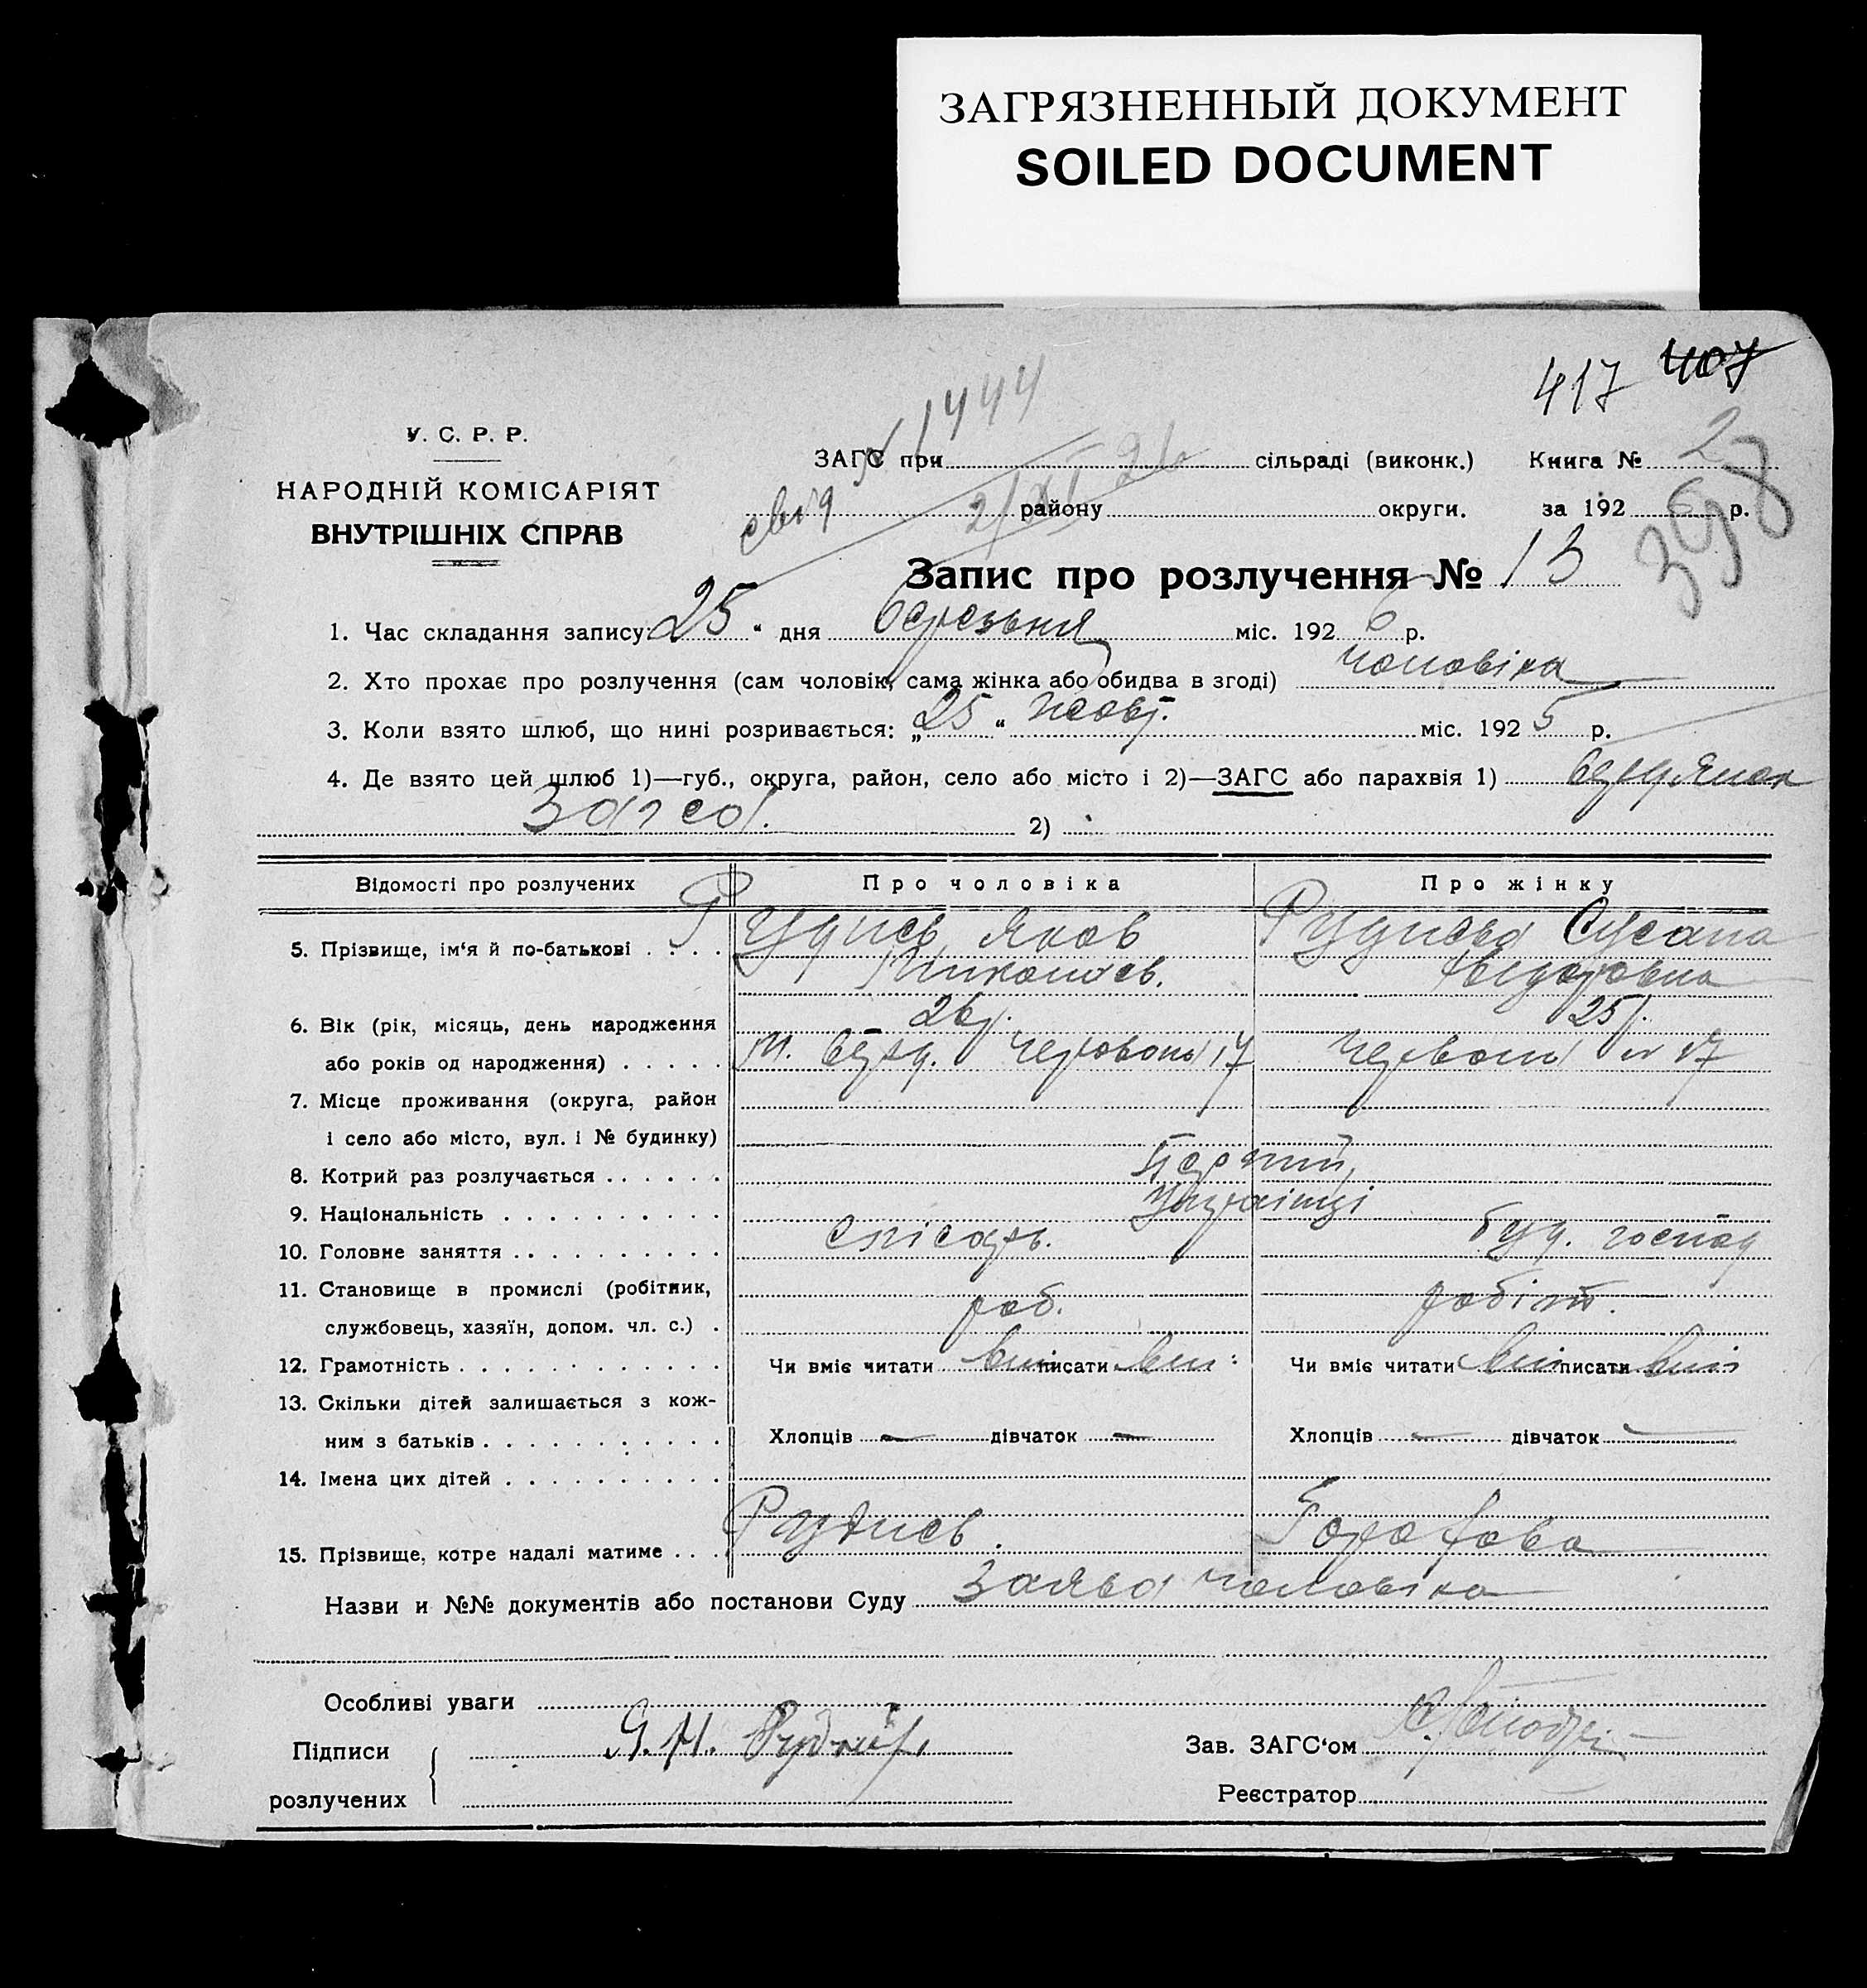 ЗАГРЯЗНЕННЫЙ ДОКУМЕНТ
SOILED DOCUMENT
417 407
У. С. Р. Р.
НАРОДНІЙ КОМІСАРІЯТ
ВНУТРІШНІХ СПРАВ
N 1444
ЗАГС при сільраді (виконк.) Книга № 2
свід 2/XI 26 району округи. за 192 6 р.
398
Запис про розлучення № 13
1. Час складання запису 25 " дня березня міс. 192 6 р.
2. Хто прохає про розлучення (сам чоловік, сама жінка або обидва в згоді) чоловіка
3. Коли взято шлюб, що нині розривається: „25 " жовт. міс. 192 5 р.
4. Де взято цей шлюб 1)—губ., округа, район, село або місто і 2)—ЗАГС або парахвія 1)
Загсо. 2)
Відомості про розлучених Про чоловіка Про жінку
5. Прізвище, ім'я й по-батькові . . . . Рудись Яков Николаев. Рудисьо Сусана Федоровна
6. Вік (рік, місяць, день народження 26 р. 25 р.
або років од народження) . . . . . м. Черовона 17 Червона № 17
7. Місце проживання (округа, район
і село або місто, вул. і № будинку)
8. Котрий раз розлучається . . . . . . Перший
9. Національність . . . . . . . . . . Українці
10. Головне заняття . . . . . . . . . . слісарь. буд. господ
11. Становище в промислі (робітник,
службовець, хазяїн, допом. чл. с.) . роб. робітн.
12. Грамотність . . . . . . . . . . . . Чи вміє читати вміє писати вм: Чи вміє читати вміє писати вміє
13. Скільки дітей залишається з кож-
ним з батьків . . . . . . . . . . . Хлопців — дівчаток — Хлопців — дівчаток —
14. Імена цих дітей . . . . . . . . . .
15. Прізвище, котре надалі матиме . . . Рудись. Горохова
Назви и №№ документів або постанови Суду Заява чоловіка
Особливі уваги
Підписи Я. Н. Зав. ЗАГС'ом
розлучених Реєстратор